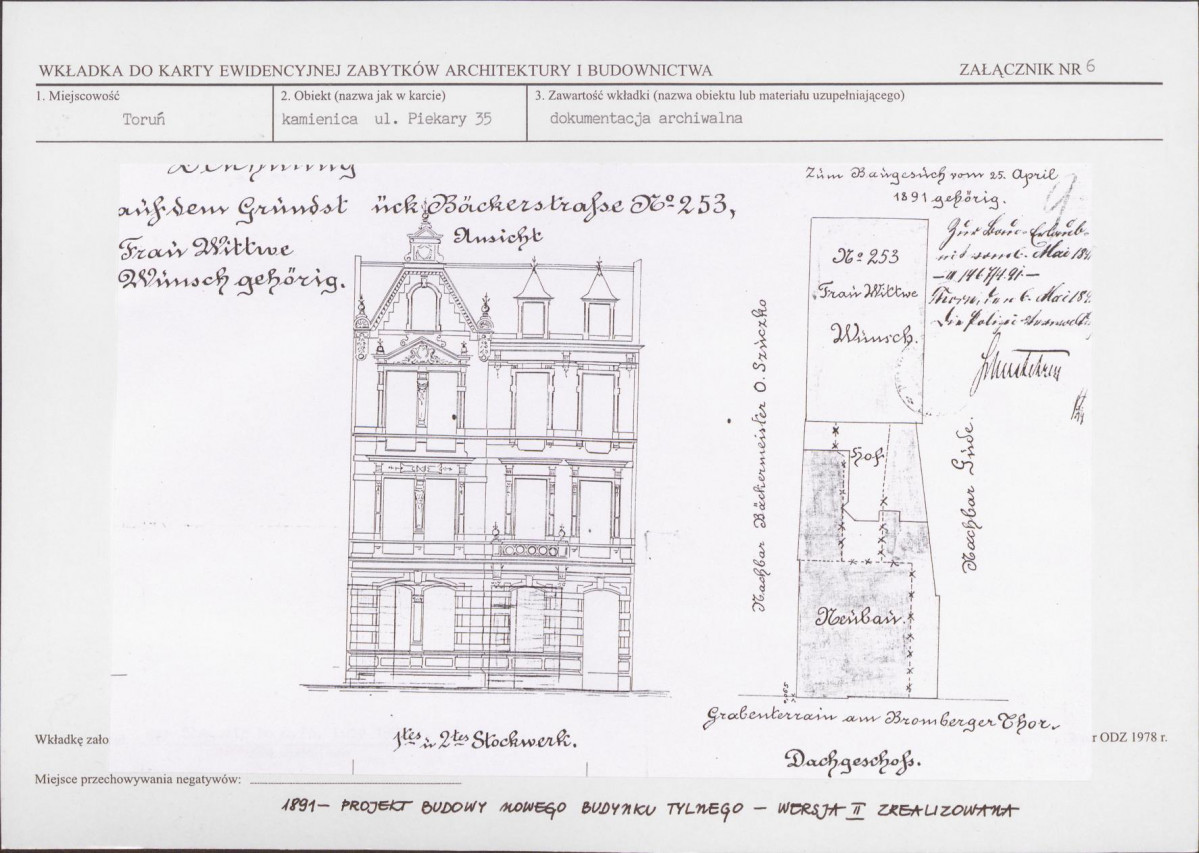 WKŁADKA DO KARTY EWIDENCYJNEJ ZABYTKÓW ARCHITEKTURY I BUDOWNICTWA
ZAŁĄCZNIK NR 6
1. Miejscowość
Toruń
2. Obiekt (nazwa jak w karcie)
kamienica ul. Piekary 35
3. Zawartość wkładki (nazwa obiektu lub materiału uzupełniającego)
dokumentacja archiwalna
auf dem Grundst ück Bäckerstraße No 253,
Frau Wittwe
Wunsch gehörig.
Ansicht
Zum Baugesuch vom 25. April
1891 gehörig.
No 253
Frau Wittwe
Wunsch.
Zur Bau-Erlaub-
Mai 18
Thorn, den 6. Mai 18
Die Polizei
Nachbar Bäckermeister O. Szuczko
Hof.
Nachbar Gude.
Neubau.
Grabenterrain am Bromberger Thor.
1tes u 2tes Stockwerk.
Dachgeschoß.
Wkładkę zało
r ODZ 1978 r.
Miejsce przechowywania negatywów:
1891 – PROJEKT BUDOWY NOWEGO BUDYNKU TYLNEGO – WERSJA II ZREALIZOWANA